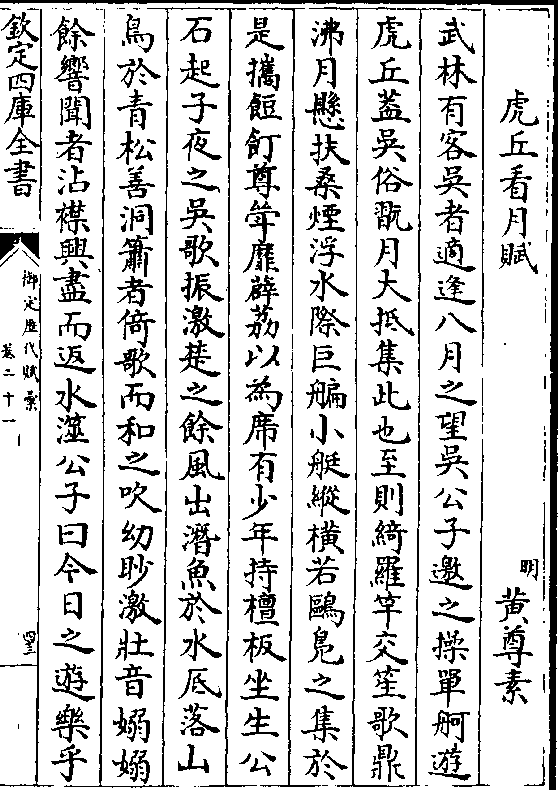 虎丘看月賦
明 黄尊素
武林有客吳者適逢八月之望吳公子邀之操單舸遊
虎丘葢吳俗翫月大抵集此也至則綺羅竿交笙歌鼎
沸月懸扶桑煙浮水際巨艑小艇縱橫若鷗鳧之集於
是攜飣尊牵靡薜荔以為席有少年持檀板坐生公
石起子夜之吳歌振激楚之餘風出潛魚於水底落山
鳥於青松善洞簫者倚歌而和之吹幼眇激壯音嫋嫋
餘響聞者沾襟興盡而返水滋公子曰今日之遊樂乎
欽定四庫全書
御定歷代賦彙
卷二十一